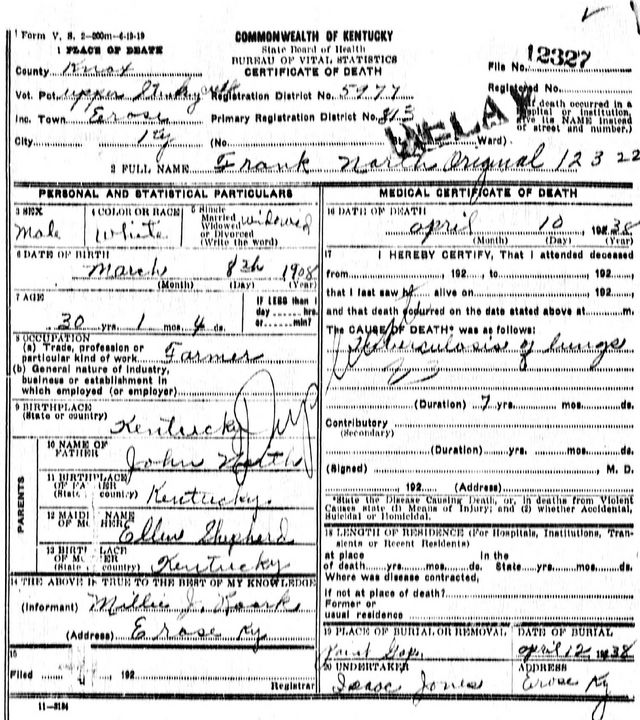 Form V. S. 2-200m-6-19-19
1 PLACE OF DEATH
County Knox
Vot. Pct. Upper Stinky
Inc. Town Erose
City Ky
COMMONWEALTH OF KENTUCKY
State Board of Health
BUREAU OF VITAL STATISTICS
CERTIFICATE OF DEATH
Registration District No. 5977
Primary Registration District No. 813
(No. Ward)
File No. 12327
Registered No.
(If death occurred in a hospital or institution, give its NAME instead of street and number.)
DELAY
2 FULL NAME Frank North Original 12322
PERSONAL AND STATISTICAL PARTICULARS
3 SEX
Male
4 COLOR OR RACE
White
5 Single
Married
Widowed
or Divorced
(Write the word)
widowed
6 DATE OF BIRTH
March 8th 1908
(Month) (Day) (Year)
7 AGE
30 yrs. 1 mos. 4 ds.
IF LESS than 1
day hrs.
or min?
8 OCCUPATION
(a) Trade, profession or
particular kind of work Farmer
(b) General nature of industry,
business or establishment in
which employed (or employer)
9 BIRTHPLACE
(State or country)
Kentucky
PARENTS
10 NAME OF
FATHER
John North
11 BIRTHPLACE
OF FATHER
(State country) Kentucky.
12 MAIDEN NAME
OF MOTHER
Ellen Shepherd
13 BIRTHPLACE
OF MOTHER
(State country) Kentucky
14 THE ABOVE IS TRUE TO THE BEST OF MY KNOWLEDGE
(Informant) Millie J. Roark
(Address) Erose Ky
15
Filed 192
Registrar
11-3184
MEDICAL CERTIFICATE OF DEATH
16 DATE OF DEATH
April 10 1938
(Month) (Day) (Year)
17 I HEREBY CERTIFY, That I attended deceased
from , 192 , to , 192 ,
that I last saw h alive on , 192 ,
and that death occurred on the date stated above at m.
The CAUSE OF DEATH* was as follows:
Tuberculosis of lungs
(Duration) 7 yrs. mos. ds.
Contributory
(Secondary)
(Duration) yrs. mos. ds.
(Signed) , M. D.
, 192 (Address)
*State the Disease Causing Death, or, in deaths from Violent
Causes state (1) Means of Injury; and (2) whether Accidental,
Suicidal or Homicidal.
18 LENGTH OF RESIDENCE (For Hospitals, Institutions, Transients or Recent Residents)
at place In the
of death yrs. mos. ds. State yrs. mos. ds.
Where was disease contracted,
if not at place of death?
Former or
usual residence
19 PLACE OF BURIAL OR REMOVAL
DATE OF BURIAL
April 12 1938
20 UNDERTAKER
Isaac Jones
ADDRESS
Erose Ky